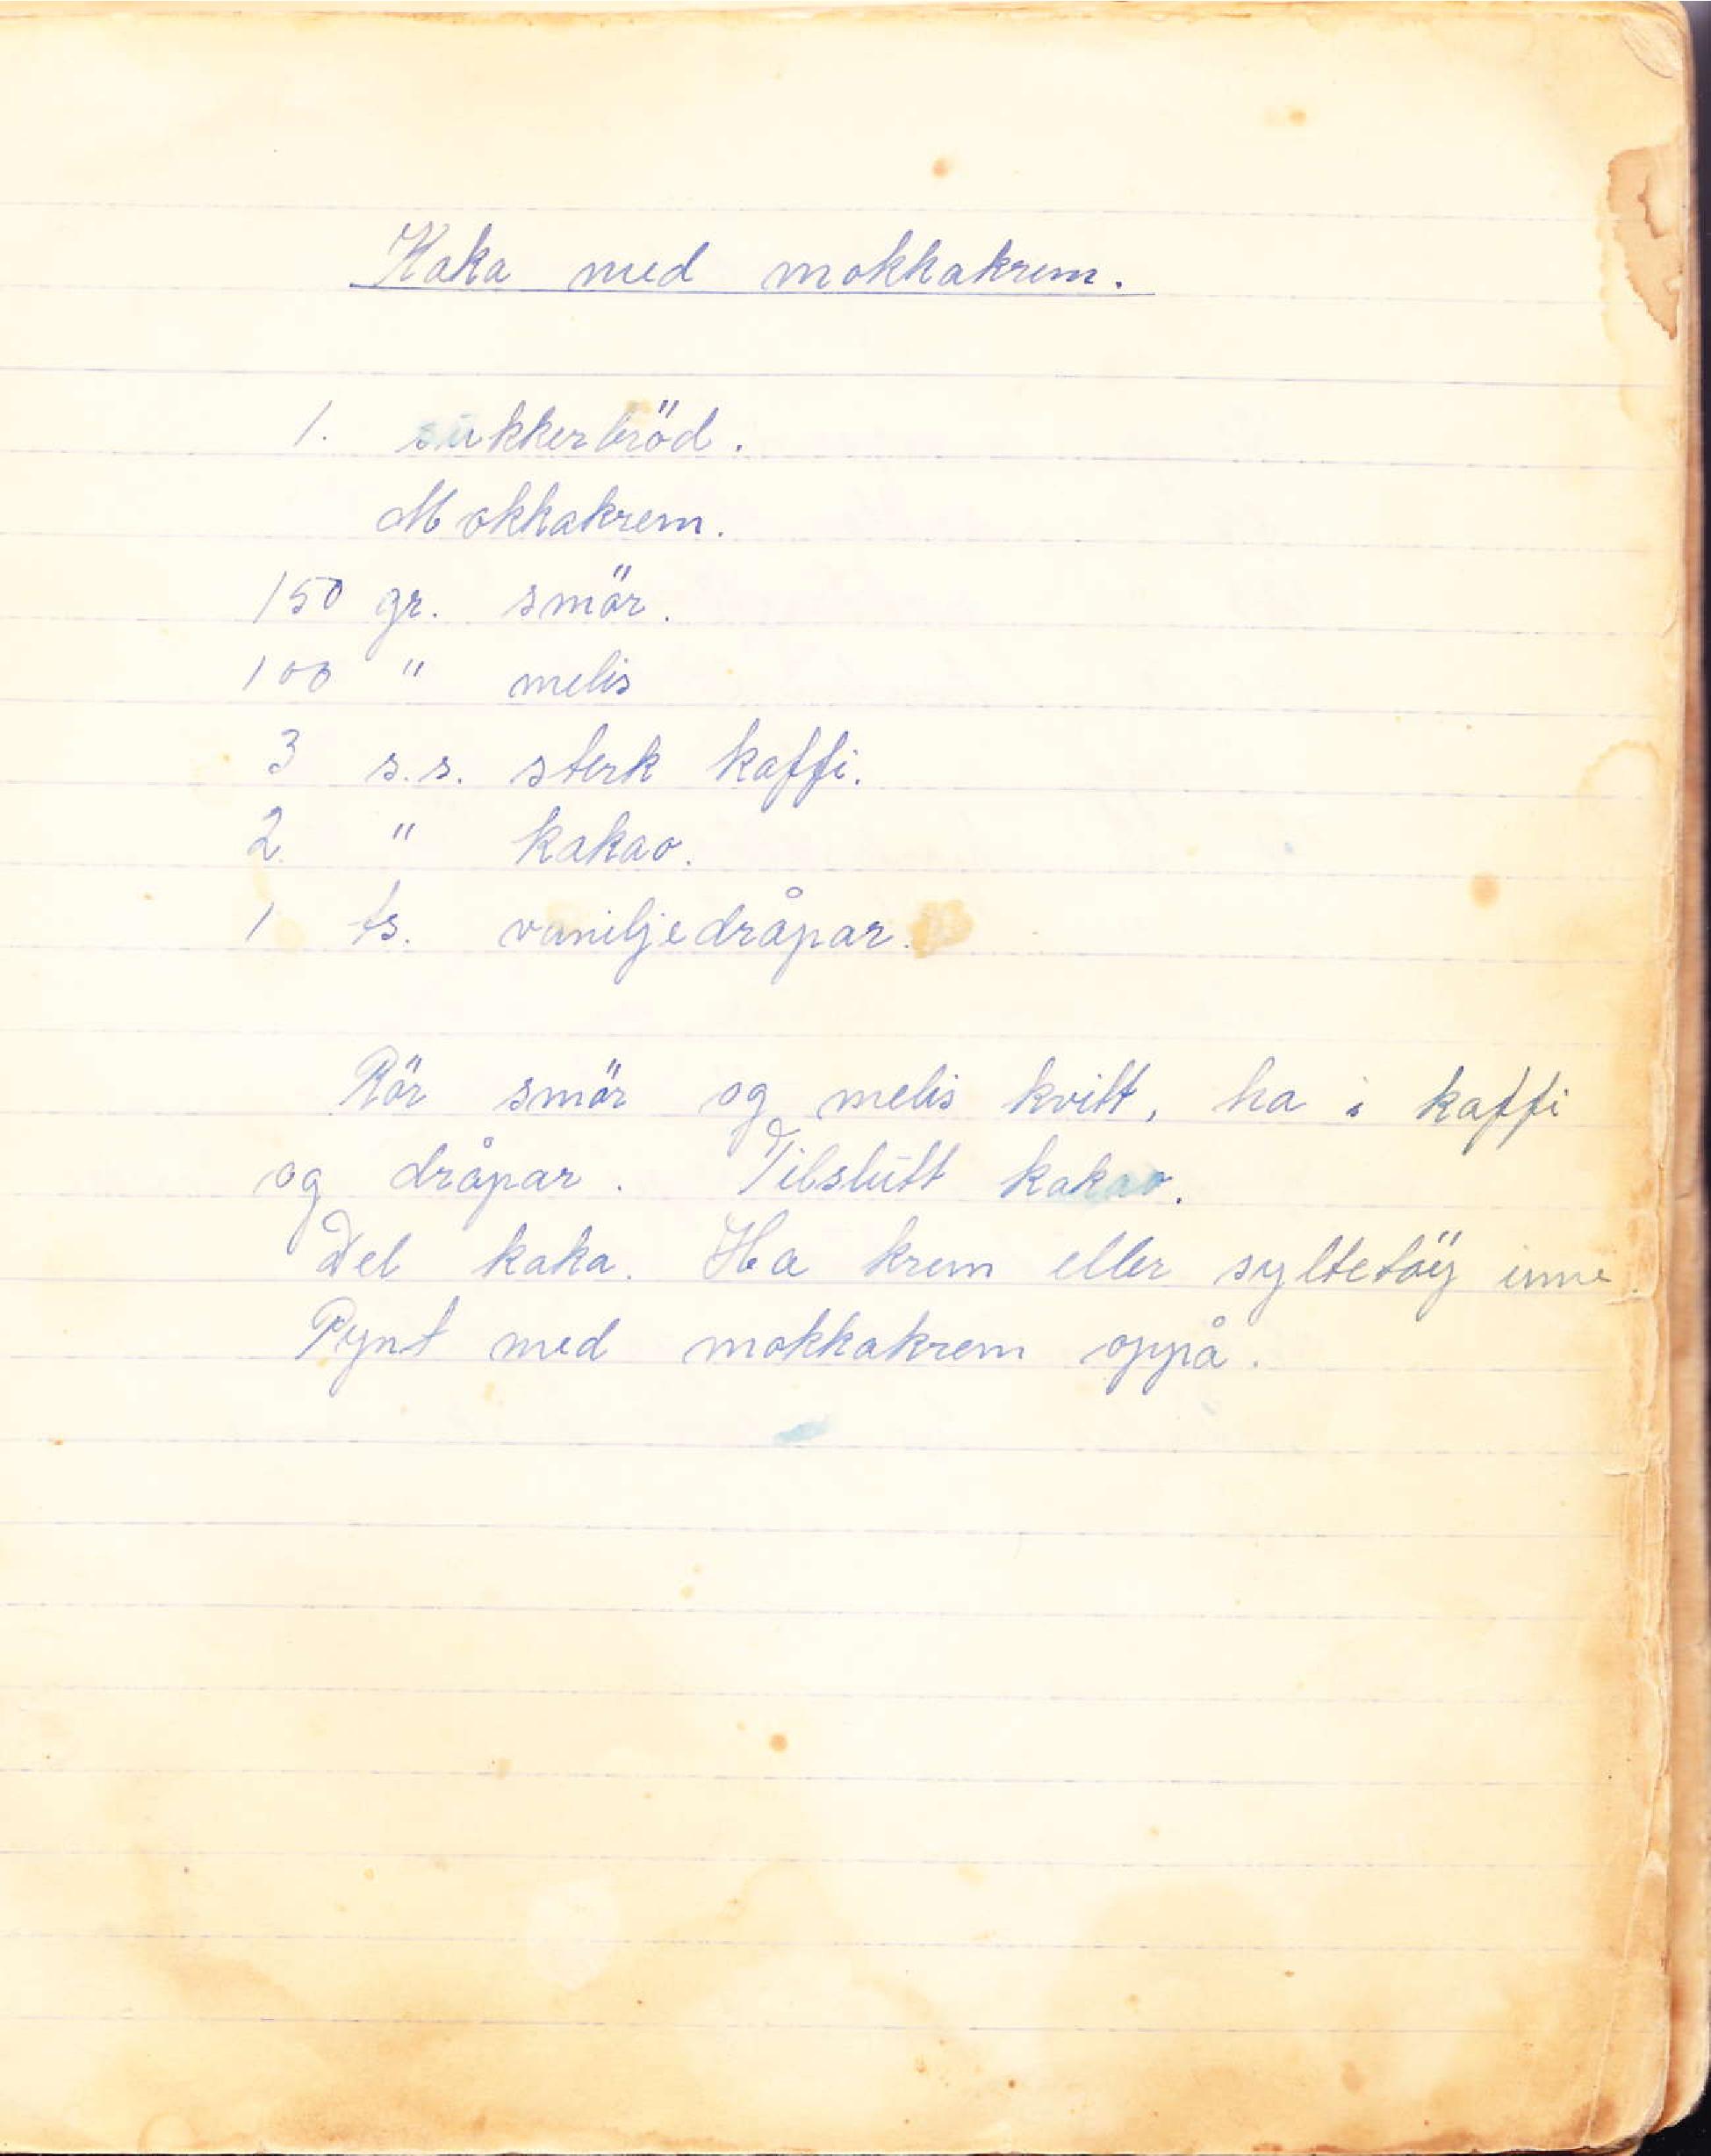 Kaka med mokkakrem.
1. sukkerbröd.
Mokkakrem.
150 gr. smör.
100 " melis
3 s.s. sterk kaffi.
2 " kakao.
1 ts. vaniljedråpar.
Rör smör og melis kvitt, ha i kaffi
og dråpar. Tilslutt kakao.
Del kaka. Ha krem eller syltetöy inne
Pynt med mokkakrem oppå.